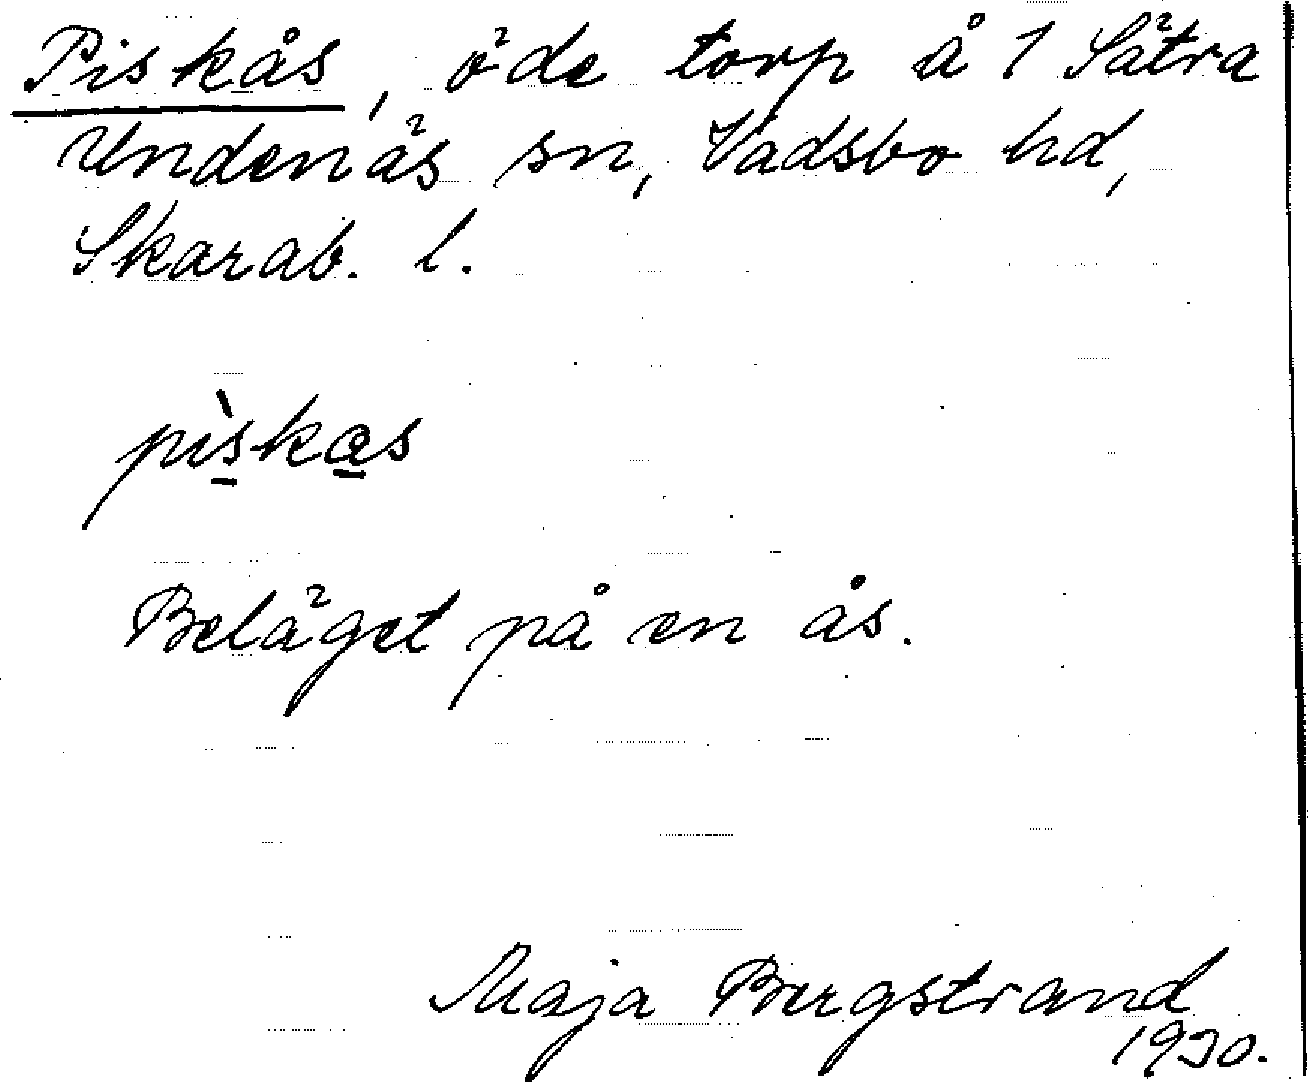 Piskås, öde torp å 1 Sätra
Undenäs sn, Vadsbo hd,
Skarab. l.
pìs̱ka̱s
Beläget på en ås.
Maja Bergstrand
1930.